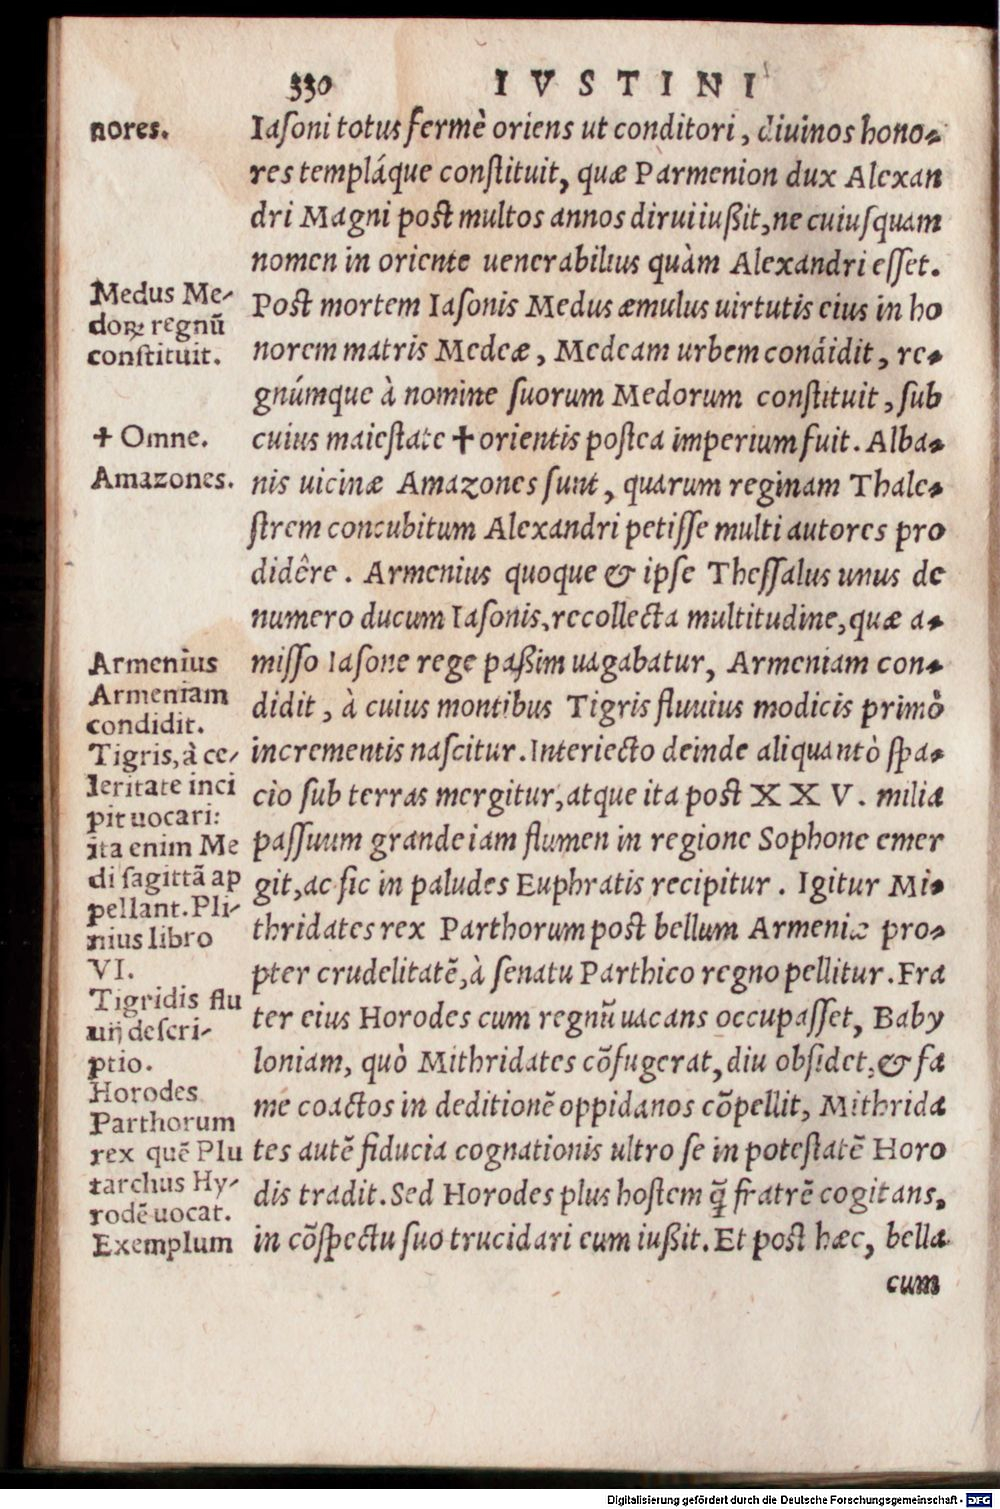 330 IVSTINI
nores.
Iasoni totus fermè oriens ut conditori, diuinos hono-
res templáque constituit, quæ Parmenion dux Alexan
dri Magni post multos annos dirui iußit, ne cuiusquam
nomen in oriente uenerabilius quàm Alexandri esset.
Post mortem Iasonis Medus æmulus uirtutis eius in ho
norem matris Medeæ, Medeam urbem condidit, re-
gnúmque à nomine suorum Medorum constituit, sub
cuius maiestate ✝ orientis postea imperium fuit. Alba-
nis uicinæ Amazones sunt, quarum reginam Thale-
strem concubitum Alexandri petisse multi autores pro
didêre. Armenius quoque & ipse Thessalus unus de
numero ducum Iasonis, recollecta multitudine, quæ a-
misso Iasone rege paßim uagabatur, Armeniam con-
didit, à cuius montibus Tigris fluuius modicis primò
incrementis nascitur. Interiecto deinde aliquantò spa-
cio sub terras mergitur, atque ita post XXV. milia
passuum grande iam flumen in regione Sophone emer
git, ac sic in paludes Euphratis recipitur. Igitur Mi-
thridates rex Parthorum post bellum Armeniæ pro-
pter crudelitatē, à senatu Parthico regno pellitur. Fra
ter eius Horodes cum regnū uacans occupasset, Baby
loniam, quò Mithridates cōfugerat, diu obsidet, & fa
me coactos in deditionē oppidanos cōpellit, Mithrida
tes autē fiducia cognationis ultro se in potestatē Horo
dis tradit. Sed Horodes plus hostem q̄ fratrē cogitans,
in cōspectu suo trucidari eum iußit. Et post hæc, bella
cum
Medus Me-
doꝝ regnū
constituit.
✝ Omne.
Amazones.
Armenius
Armeniam
condidit.
Tigris, à ce-
leritate inci
pit uocari:
ita enim Me
di sagittā ap
pellant. Pli-
nius libro
VI.
Tigridis flu
uij descri-
ptio.
Horodes
Parthorum
rex quē Plu
tarchus Hy-
rodē uocat.
Exemplum
Digitalisierung gefördert durch die Deutsche Forschungsgemeinschaft - DFG